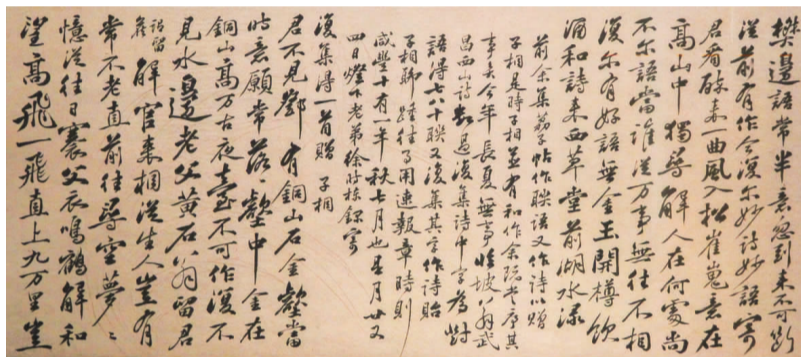 樊邊語常半意忽到來不可斷
從前有作今復尔妙詩妙語寄
君看醉來一曲風入松崔嵬意在
高山中獨尋解人在何處尚
不尔語當誰從万事無往不相
復尔有好語無金玉開樽飲
酒和詩來西草堂前湖水淥
前余集荔子帖作聯語又作詩以贈
子相是時子相並有和作余既嘗序其
事矣今年長夏無事惟坡翁武
昌西山詩過復集詩中字為對
語得七八十聯又復集其字作詩貽
子相聊踵往事用速報章時則
咸豐十有一年秋七月也是月廿又
四日燈下老弟徐時棟錄寄
復集得一首贈子相
君不見鄧有銅山石金壑當
時意願常落壑中金在
銅山高万古夜臺不可作復不
見水邊老父黃石翁留君
舊詔留解官來相從生人豈有
常不老直前往尋空夢夢
憶從往日褰父衣鳴鶴解和
望高飛一飛直上九万里坐